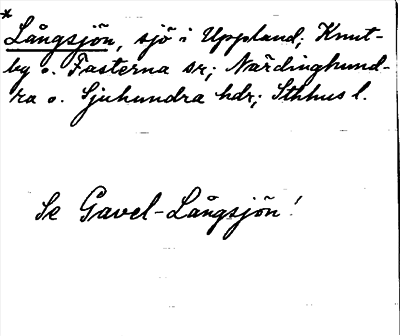 * Långsjön, sjö i Uppland; Knut-
by o. Fasterna sr; Närdinghund-
ra o. Sjuhundra hdr; Sthhus l.
Se Gavel-Långsjön!